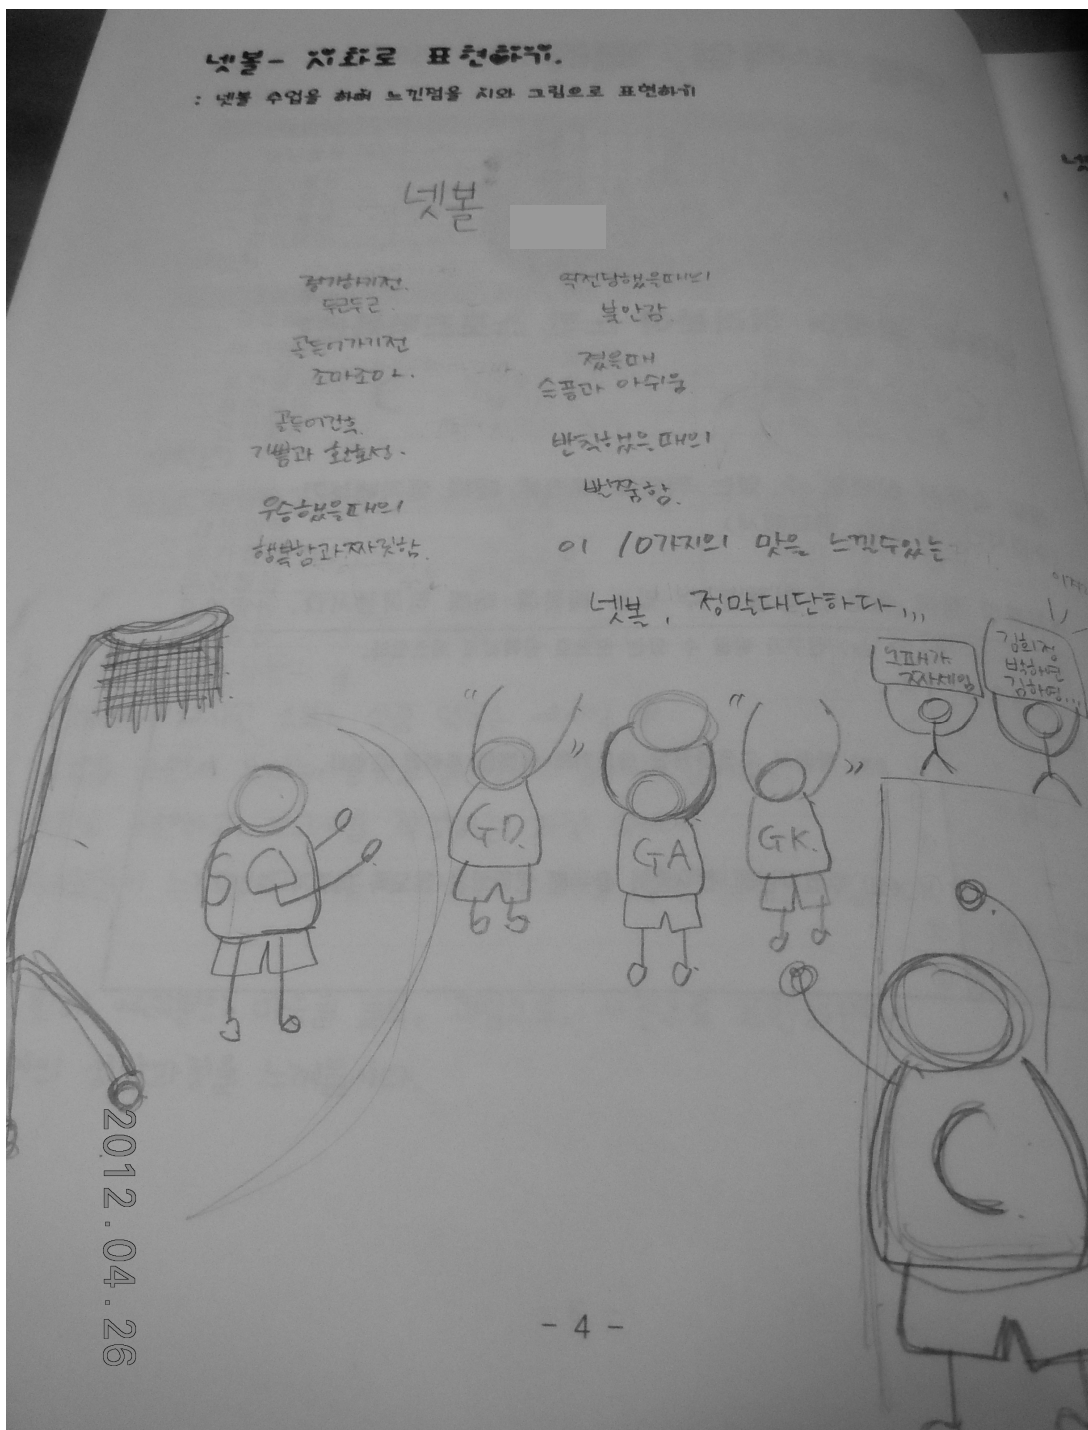 넷볼- 시화로 표현하기.
: 넷볼 수업을 하며 느낀점을 시와 그림으로 표현하기
넷볼
경기하기전.
두근두근.
골들어가기전
조마조마.
골들어간후.
기쁨과 환호성.
우승했을때의
행복함과짜릿함.
역전당했을때의
불안감.
졌을때
슬픔과 아쉬움
반칙했을때의
뻘쭘함.
이 10가지의 맛을 느낄수있는
넷볼, 정말대단하다...
느패가
짜세임
김희정
박하연
김하영...
GD.
GA
GK.
C
2012.04.26
- 4 -